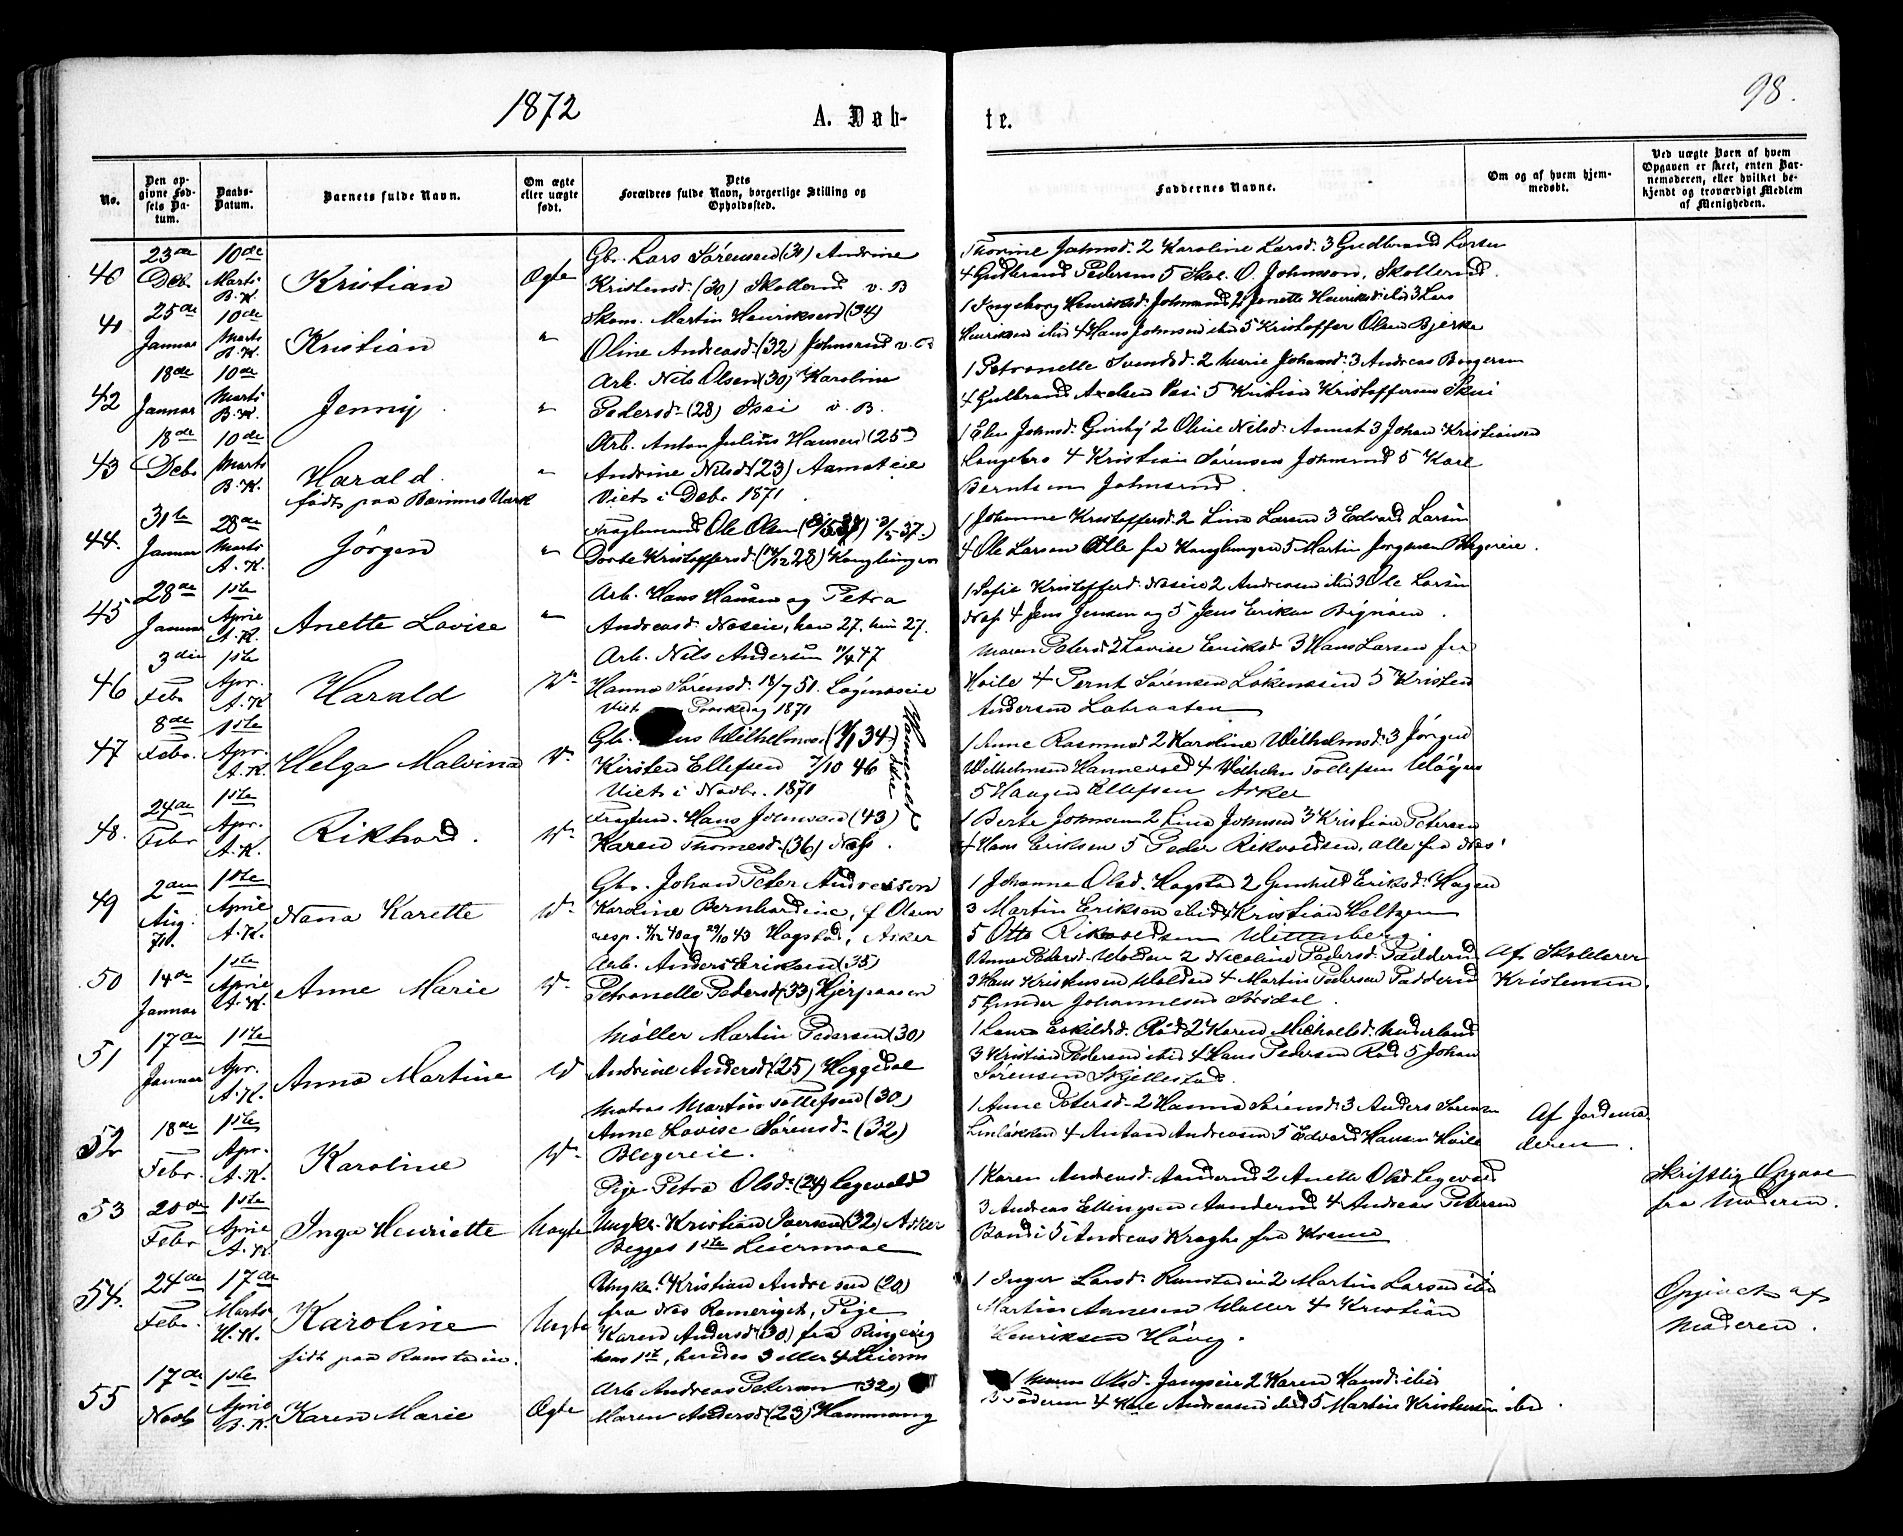 1872
98.
A. Døb-
te.
No.
Den op-
givne Fød-
sels Da-
tum.
Daabs-
Datum.
Barnets fulde Navn.
Om ægte
eller uægte
født.
Dets
Forældres fulde Navn, borgerlige Stilling og
Opholdssted.
Faddernes Navne.
Om og af hvem hjem-
medøbt.
Ved uægte Børn af hvem
Opgaven er skeet, enten Bar-
nemoderen, eller hvilket be-
kjendt og troværdigt Medlem
af Menigheden.
40
23de
Debr
10de
Marts
B.K.
Kristian
Ægte
Gbr. Lars Sørensen (30) Andrine
Kristensd. (30) Skollerud v. B
Thorine Johnsd. 2 Karoline Larsd. 3 Gudbrand Larsen
4 Gudbrand Pedersen 5 Skol. O. Johnsen, Skollerud.
41
25de
Januar
10de
Marts
B.K.
Kristian
"
Skom. Martin Henriksen (34)
Oline Andreasd. (32) Johnsrud v. B
1 Ingeborg Henriksd. Johnsrud 2 Janette Henriksd. ibid 3 Lars
Henriksen ibid 4 Hans Johnsen ibid 5 Kristoffer Olsen Bjerke
42
18de
Januar
10de
Marts
B.K.
Jenny
"
Arb. Nils Olsen (30) Karoline
Pedersd. (28) v. B.
1 Petronelle Svendsd. 2 Marie Johansd. 3 Andreas Borgersen
4 Gulbrand Axelsen 5 Kristian Kristoffersen Skui
43
18de
Debr
10de
Marts
B.K.
Harald.
født paa Bærums Værk
"
Arb. Anton Julius Hansen (25)
Andrine Nilsd. (23) Aamoteie
Viet i Debr 1871
1 Elen Johnsd. 2 Oline Nilsd. Aamot 3 Johan Kristiansen
4 Kristian Sørensen Johnsrud 5 Karl
Berntsen Johnsrud.
44.
31te
Januar
28de
Marts
A.K.
Jørgen
"
Ole Olsen 3/5 37.)
Dorte Kristoffersd. (14/12 28) Konglungen
1 Johanne Kristoffersd. 2 Lina Larsen 3 Edvard Larsen
4 Ole Larsen Alle fra Konglungen 5 Martin Jørgensen Blegereie.
45
28de
Januar
1ste
April
A.K.
Anette Lovise
"
Arb. Hans Hansen og Petra
Andreasd. Næseie, han 27, hun 27.
1 Sofie Kristoffersd. Næseie 2 Andreasen ibid 3 Ole Larsen
Næs 4 Jens Jensen og 5 Jens Eriksen
46
3die
Febr
1ste
Apr.
A.K
Harald
Arb. Nils Andersen 11/4 47
Hanna Sørensd. 18/7 51.
Viet Paaskedag 1871
Maren Petersd. 2 Lovise Eriksd. 3 Hans Larsen fra
Hoile 4 Bernt Sørensen 5 Kristen
Andersen Labraaten
47
8de
Febr.
1ste
Apr.
A.K.
Helga Malvina
Gbr. Wilhelms. 34)
Kirsten Ellefsen 7/10 46
Viet i Novbr. 1871
1 Anne Rasmusd. 2 Karoline Wilhelmsd. 3 Jørgen
Wilhelmsen Hannevold 4 Wilhelm Tollefsen
5 Haagen Ellefsen Asker
48.
24de
Febr
1ste
Apr.
A.K.
Rikhard.
Hans Johnsen (43)
Karen Thomesd. (36) Næs.
1 Berte Johnsen 2 Lina Johnsen 3 Kristian Petersen
4 Hans Eriksen 5 Peder Rikvoldsen, alle fra Næs
49
2den
Aug.
71.
1ste
April
A.K.
Nana Karette
Gbr. Johan Peter Andresen
Karoline Bernhardine, f Olsen
resp. 40 og 43 Hagstad, Asker
1 Johanna Olsd. Hagstad 2 Gunhild Eriksd. Hagen
3 Martin Eriksen ibid 4 Kristian Holtzen
5 Otto Rikvoldsen Wittenberg.
50
14de
Januar
1ste
April
A.K.
Anne Marie
Arb. Anders Eriksen (35)
Petronelle Pedersd. (33) Hjerpaasen
Anne Pedersd. Wolden 2 Nicoline Pedersd. Padderud
3 Hans Kristensen Wolden 4 Martin Pedersen Padderud
5 Gunder Johannesen
Af Skolelærer
Kristensen.
51
17de
Januar
1ste
Apr.
A.K.
Anna Martine
Møller Martin Pedersen (30)
Andrine Andersd. (25) Heggedal
1 Laura Eskildsd. Rød 2 Karen Michaelsd. Underland
3 Kristian Pedersen ibid 4 Hans Pedersen Rød 5 Johan
Sørensen Skjellestad.
52
18de
Febr.
1ste
Apr.
A.K.
Karoline
Matros Martin Tollefsen (30)
Anne Lovise Sørensd. (32)
Blegereie.
1 Anne Petersd. 2 Hanna Sørensd. 3 Anders Sørensen
4 Antoni Andreasen 5 Edvard Hansen Hoile
Af Jordemo
deren
53
20de
Febr
1ste
April
A.K.
Inga Henriette
Uægte
Pige Petra Olsd. (24)
Ungkr. Kristian Iversen (32) Asker
Begges 1ste Leiermaal
1 Karen Andersd. 2 Anette Olsd.
3 Andreas Ellingsen 4 Andreas Petersen
5 Andreas Kraghe fra
Skriftlig Opgave
fra Moderen.
54.
24de
Febr.
17de
Marts
H.K.
Karoline
født paa Ramstadeie.
Uægte
Ungkr. Kristian Andresen (20)
fra Næs Romerige, Pige
Karen Andersd. (30) fra Ringerig
hans 1ste, hendes 3 eller 4 Leierm
1 Inger Larsd. Ramstadeie 2 Martin Larsen ibid
Martin Arnesen 4 Kristian
Henriksen Høvig.
Opgivet af
Moderen.
55
17de
Novbr
1ste
April
B.K.
Karen Marie
Ægte
Arb. Andreas Petersen (32)
Maren Andersd. (23) Hammang
1 Maren Olsd. 2 Karen Hansd. ibid
3 Faderen 4 Karl Andreasen ibid 5 Martin Kristiansen ibid.